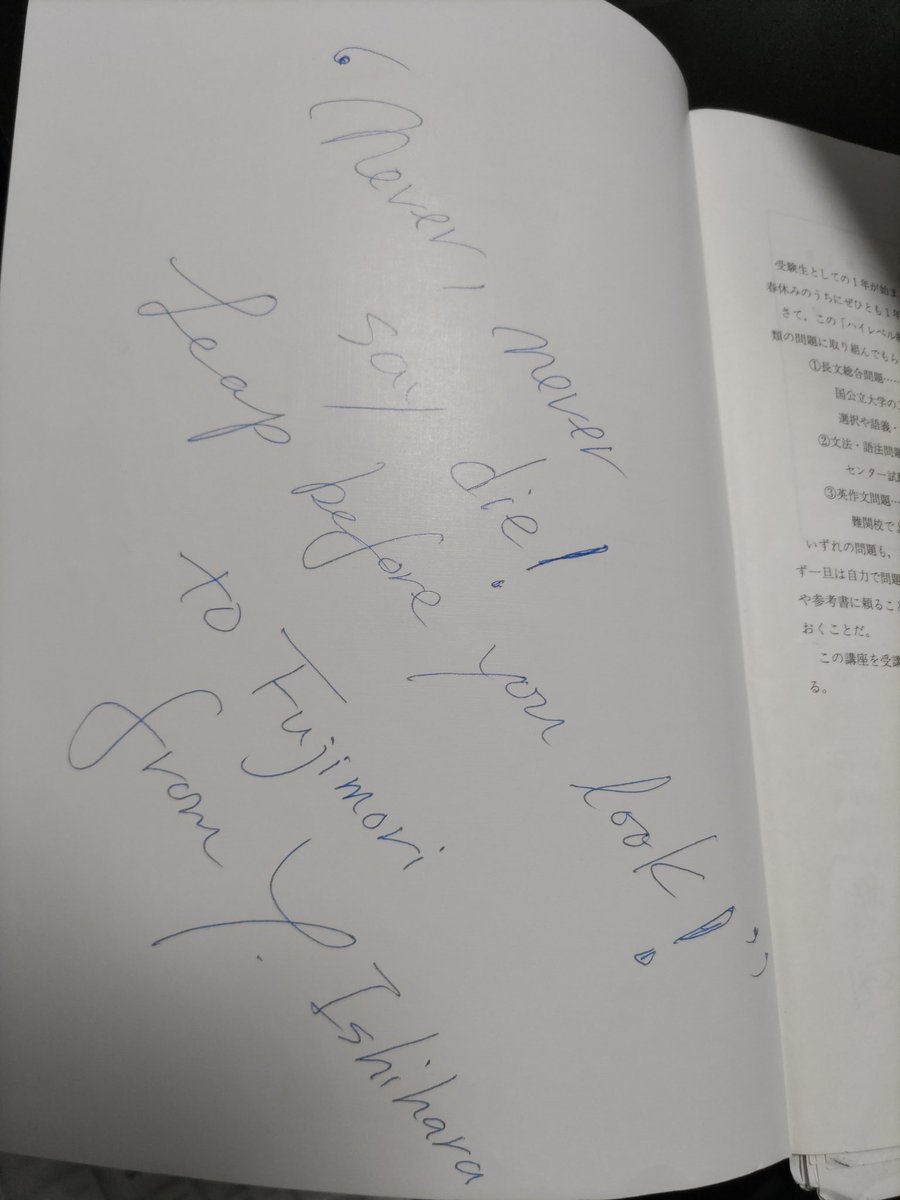 “Never, never
say die!
Leap before you look!”
to Fujimori
from Y. Ishihara
受験生としての1年が始ま
春休みのうちにぜひとも1年
さて,この「ハイレベル
類の問題に取り組んでもら
①長文総合問題……
国公立大学の
選択や語義・
②文法・語法問題
センター試
③英作文問題…
難関校で
いずれの問題も,
ず一旦は自力で問題
や参考書に頼ること
おくことだ。
この講座を受講
る。